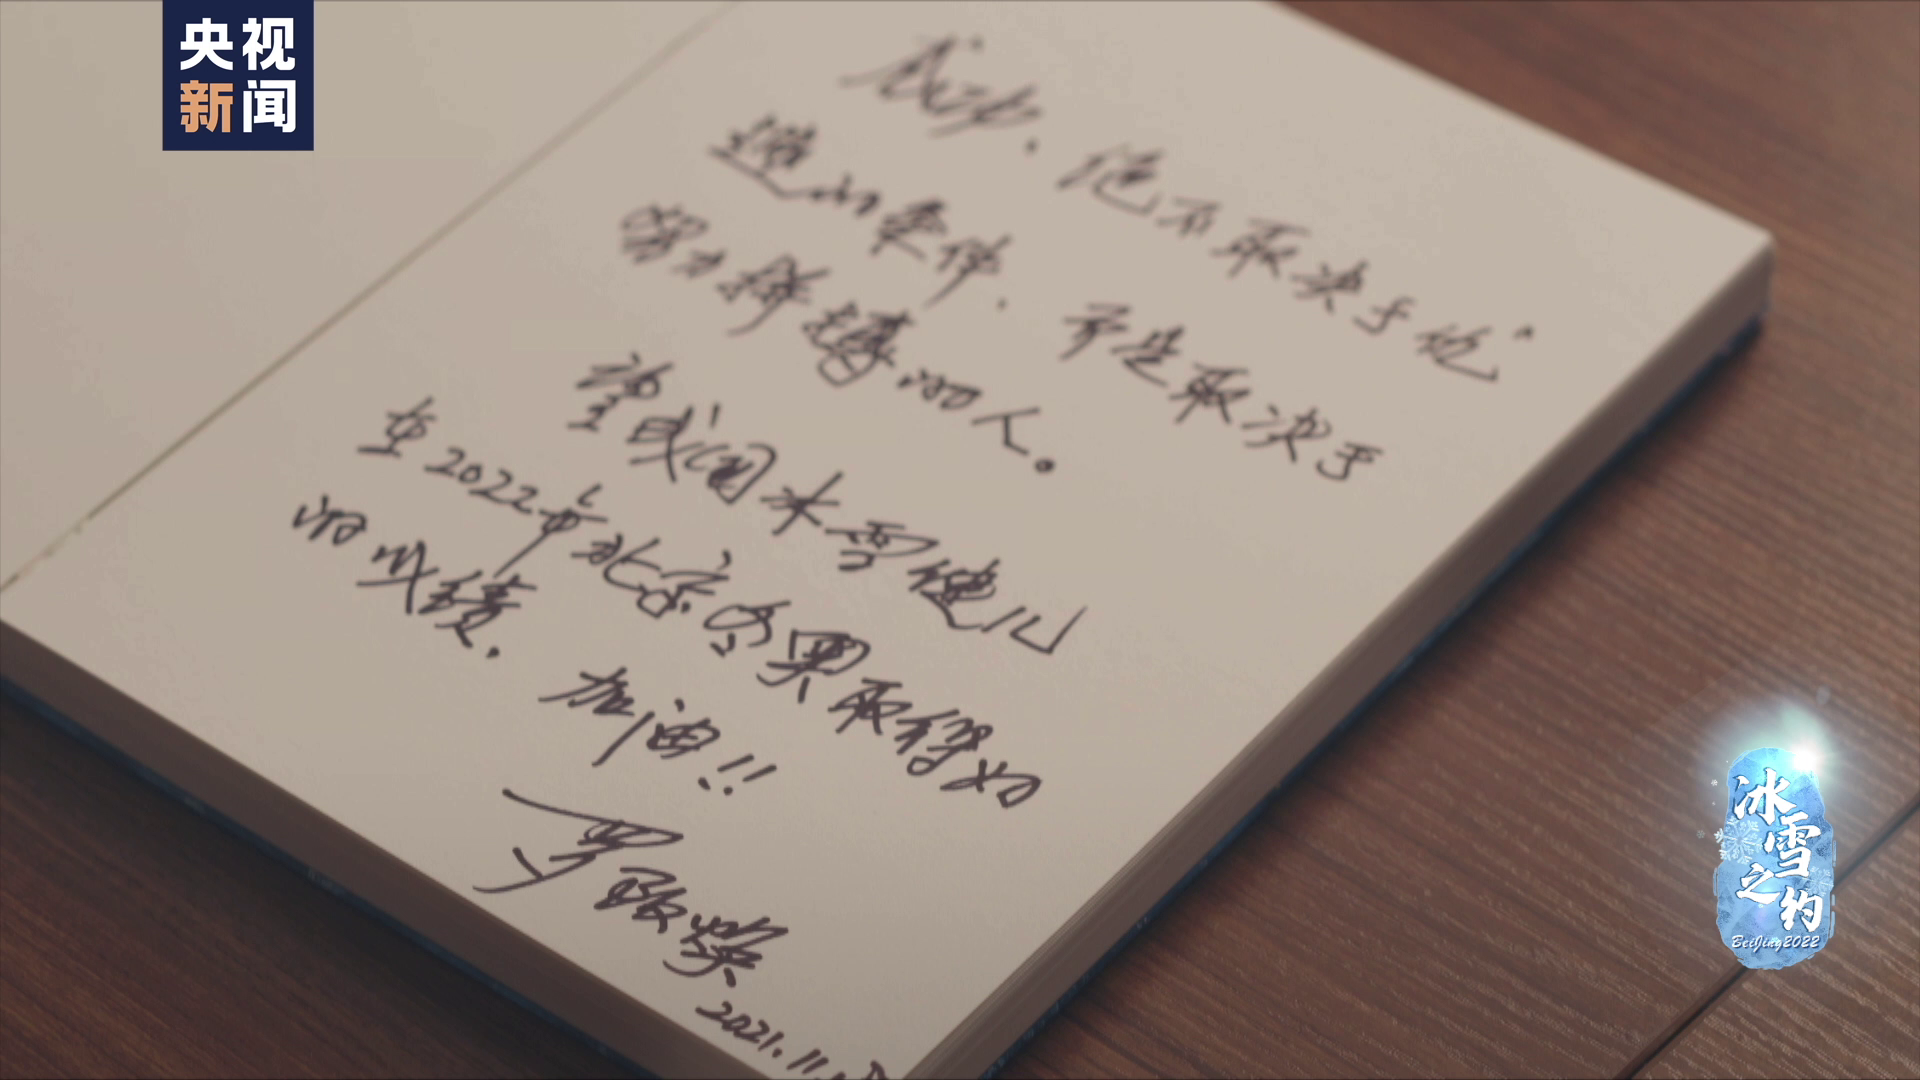 央视
新闻
成功、绝不取决于优
越的条件、而是取决于
努力拼搏的人。
望我国冰雪健儿
在2022年北京冬奥取得好
的成绩. 加油!!
罗致焕
2021.11.
冰雪之约
BeiJing2022